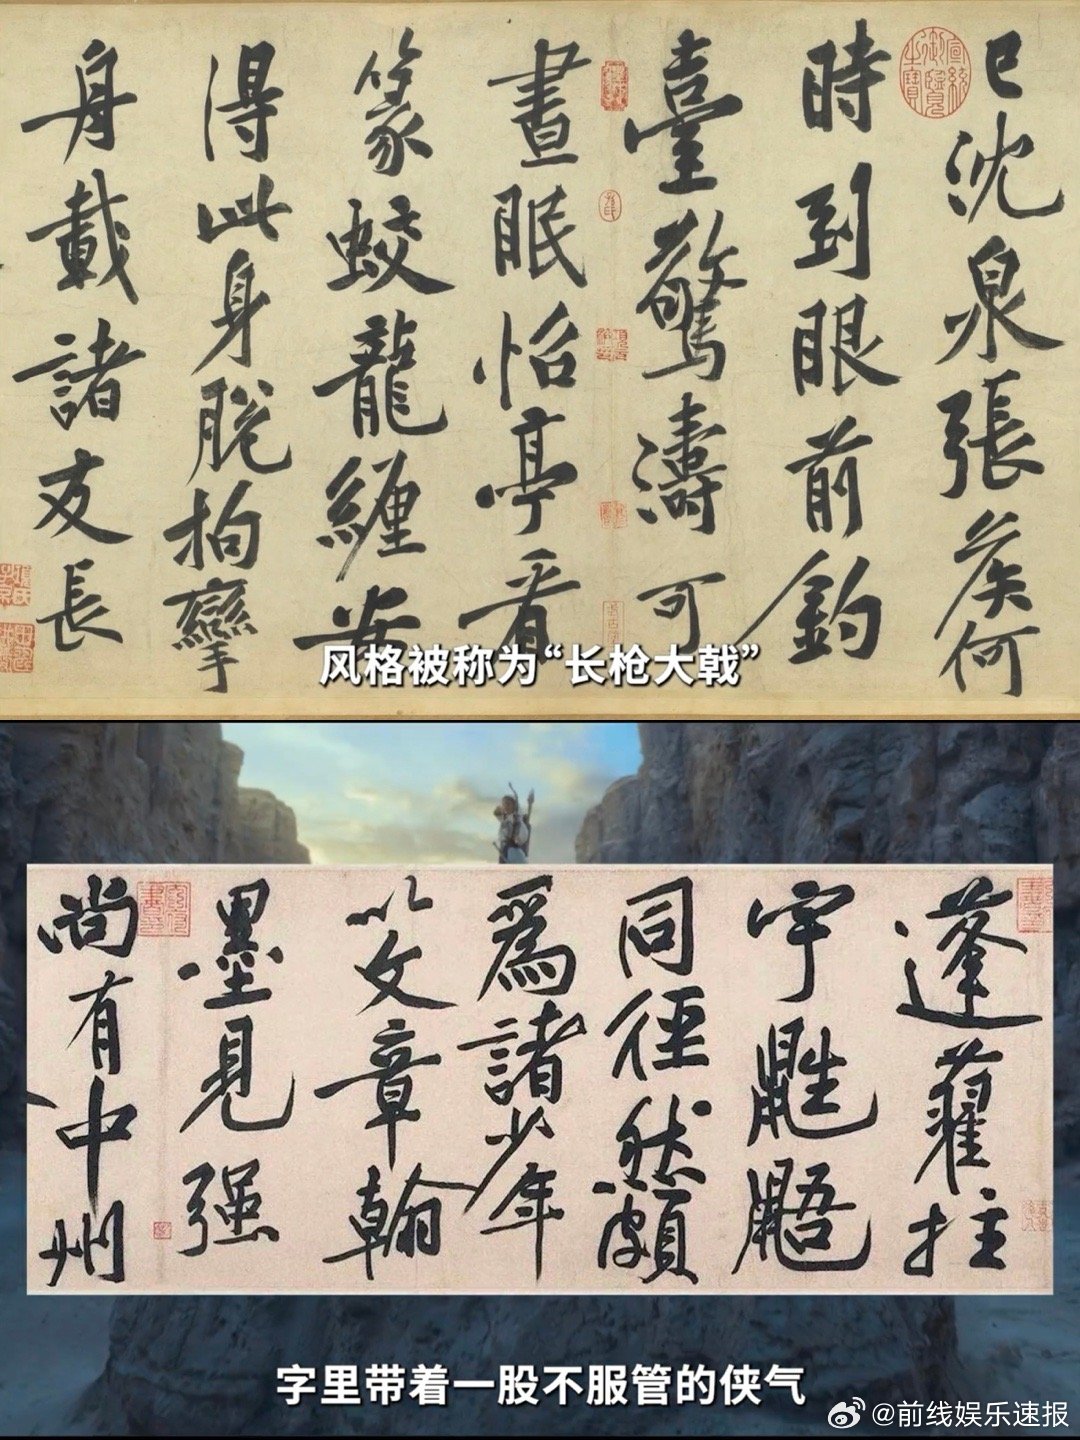 已沈泉張侯何
時到眼前釣
臺驚濤可
晝眠怡亭看
篆蛟龍纏安
得此身脫拘攣
舟載諸友長
宣統御覽之寶
风格被称为“长枪大戟”
蓬藋拄
宇鼪鼯
同徑然頗
爲諸少年
以文章翰
墨見强
尚有中州
字里带着一股不服管的侠气
@前线娱乐速报